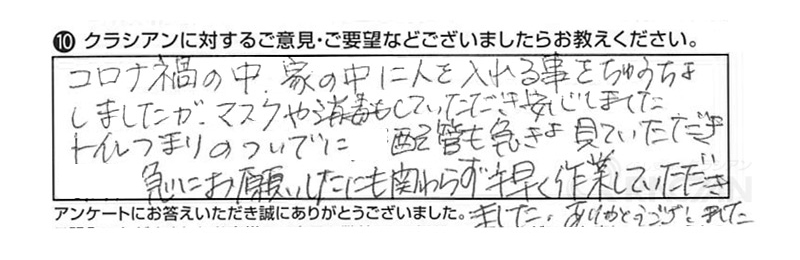 ⑩ クラシアンに対するご意見・ご要望などございましたらお教えください。
コロナ禍の中、家の中に人を入れる事をちゅうちょ
しましたが、マスクや消毒もしていただき安じしました
トイレつまりのついでに 配管も急きょ見ていただき
急にお願いしたにも関わらず手早く作業していただき
ました。ありがとうございました
アンケートにお答えいただき誠にありがとうございました。